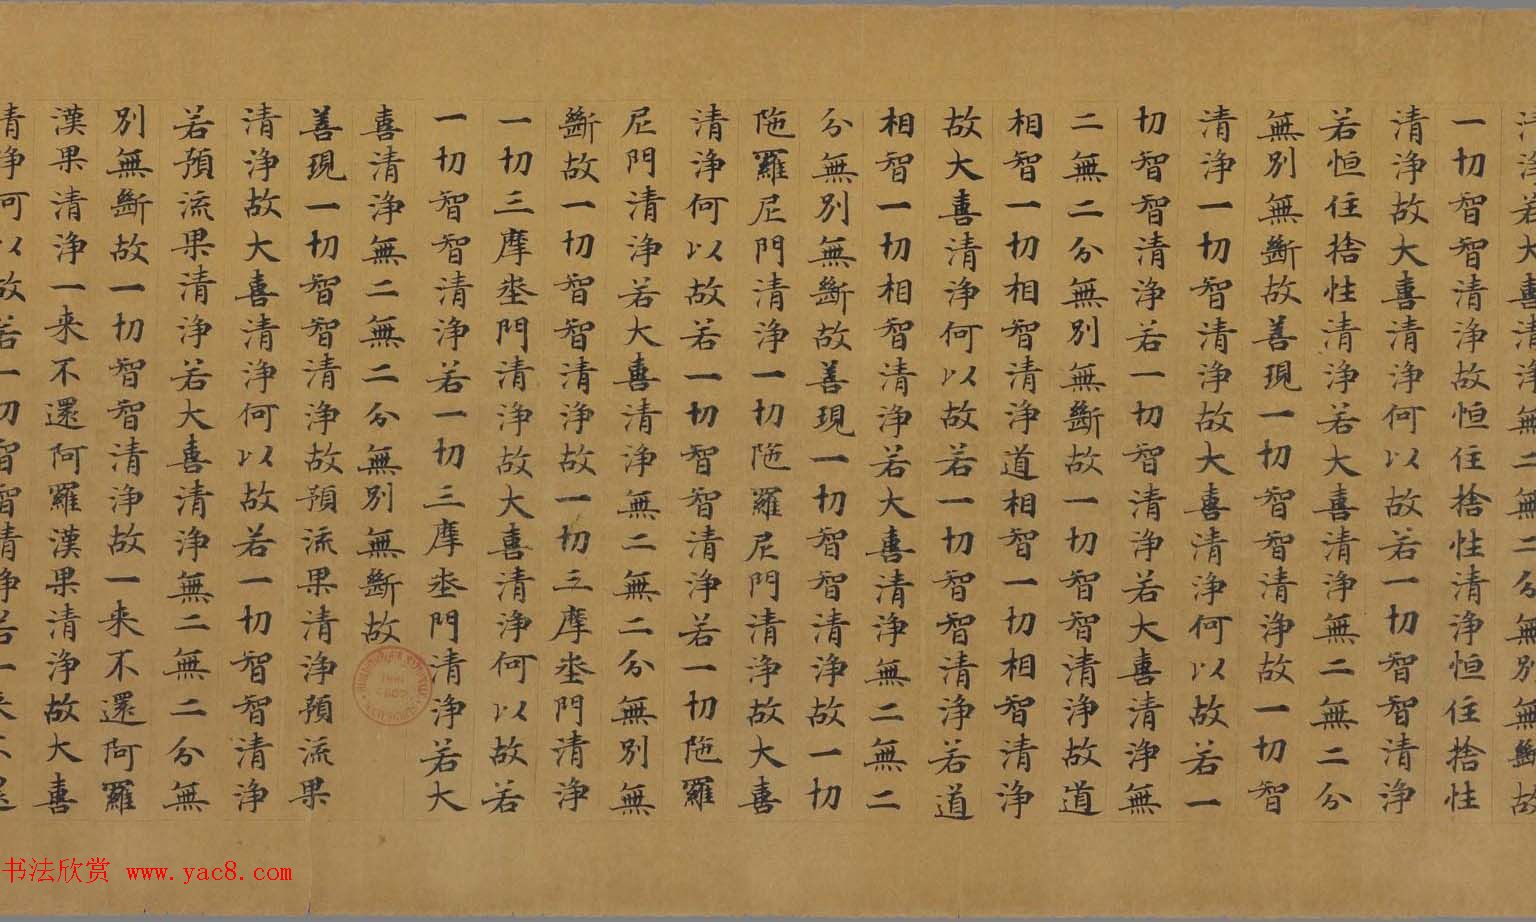 清淨若大喜清淨無二無二分無別無斷故
一切智智清淨故恒住捨性清淨恒住捨性
清淨故大喜清淨何以故若一切智智清淨
若恒住捨性清淨若大喜清淨無二無二分
無別無斷故善現一切智智清淨故一切智
清淨一切智清淨故大喜清淨何以故若一
切智智清淨若一切智清淨若大喜清淨無
二無二分無別無斷故一切智智清淨故道
相智一切相智清淨道相智一切相智清淨
故大喜清淨何以故若一切智智清淨若道
相智一切相智清淨若大喜清淨無二無二
分無別無斷故善現一切智智清淨故一切
陁羅尼門清淨一切陁羅尼門清淨故大喜
清淨何以故若一切智智清淨若一切陁羅
尼門清淨若大喜清淨無二無二分無別無
斷故一切智智清淨故一切三摩埊門清淨
一切三摩埊門清淨故大喜清淨何以故若
一切智智清淨若一切三摩埊門清淨若大
喜清淨無二無二分無別無斷故
善現一切智智清淨故預流果清淨預流果
清淨故大喜清淨何以故若一切智智清淨
若預流果清淨若大喜清淨無二無二分無
別無斷故一切智智清淨故一来不還阿羅
漢果清淨一来不還阿羅漢果清淨故大喜
清淨何以故若一切智智清淨若一来不還
书法欣赏 www.yac8.com